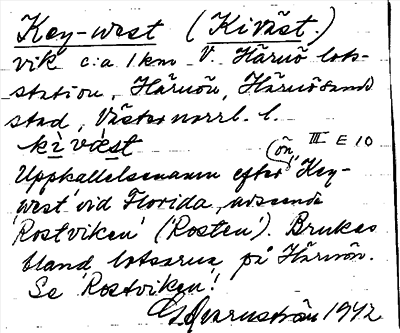 Key-west (Kiväst.)
vik c:a 1 km V. Härnö lots-
station, Härnön, Härnösands
stad, Västernorrl. l.
kìvæst
III E 10
Uppkallelsenamn efter ön 'Key-
west' vid Florida, avseende
'Rostviken' ('Rosten'). Brukas
bland lotsarna på Härnön.
Se 'Rostviken'!
1942